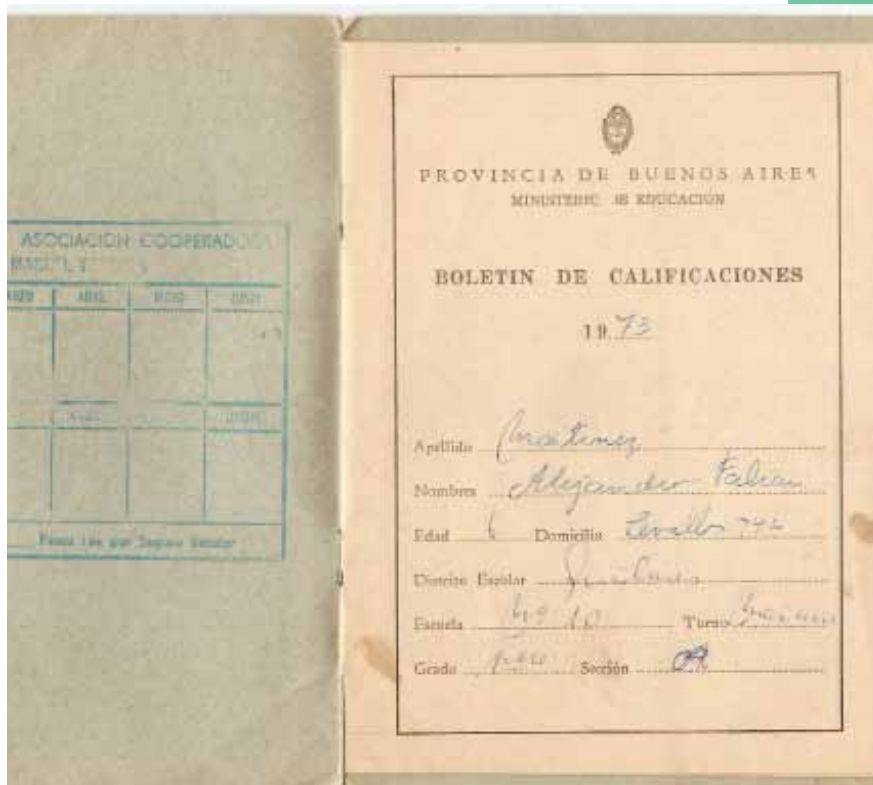 ASOCIACION COOPERADORA
ABRIL
JUNIO
Seguro Escolar
PROVINCIA DE BUENOS AIRES
MINISTERIO DE EDUCACIÓN
BOLETIN DE CALIFICACIONES
1973
Apellido Martinez
Nombres Alejandro Fabian
Edad 6 Domicilio Cevallos 744
Distrito Escolar Quilmes
Escuela Nº 10 Turno Mañana
Grado 1ero Sección